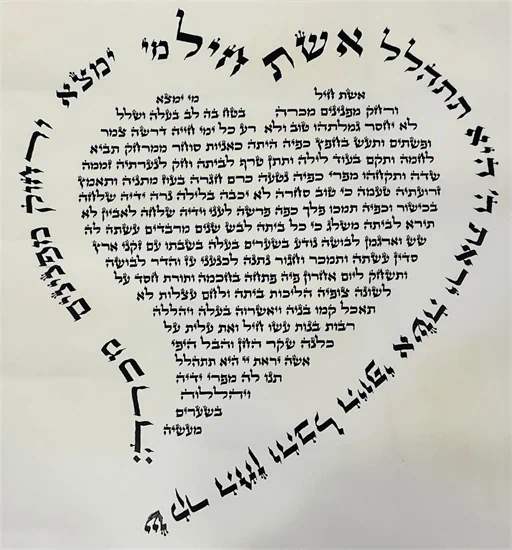 אשת חיל מי ימצא ורחוק מפנינים מכרה
שקר החן והבל היופי אשה יראת ה' היא תתהלל
אשת חיל מי ימצא
ורחק מפנינים מכרה בטח בה לב בעלה ושלל
לא יחסר גמלתהו טוב ולא רע כל ימי חייה דרשה צמר
ופשתים ותעש בחפץ כפיה היתה כאניות סוחר ממרחק תביא
לחמה ותקם בעוד לילה ותתן טרף לביתה וחק לנערתיה זממה
שדה ותקחהו מפרי כפיה נטעה כרם חגרה בעוז מתניה ותאמץ
זרועתיה טעמה כי טוב סחרה לא יכבה בלילה נרה ידיה שלחה
בכישור וכפיה תמכו פלך כפה פרשה לעני וידיה שלחה לאביון לא
תירא לביתה משלג כי כל ביתה לבש שנים מרבדים עשתה לה
שש וארגמן לבושה נודע בשערים בעלה בשבתו עם זקני ארץ
סדין עשתה ותמכר וחגור נתנה לכנעני עז והדר לבושה
ותשחק ליום אחרון פיה פתחה בחכמה ותורת חסד על
לשונה צופיה הליכות ביתה ולחם עצלות לא
תאכל קמו בניה ויאשרוה בעלה ויהללה
רבות בנות עשו חיל ואת עלית על
כלנה שקר החן והבל היפי
אשה יראת יי היא תתהלל
תנו לה מפרי ידיה
ויהללוה
בשערים
מעשיה